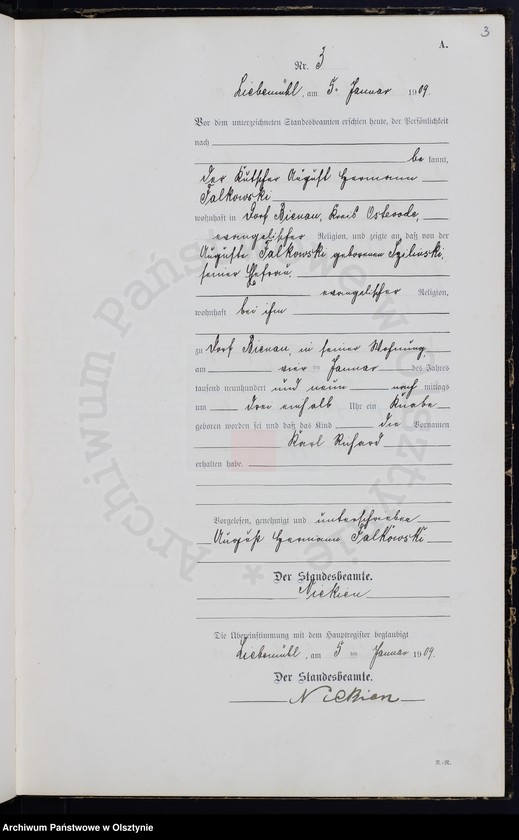 3
A.
Nr. 3
Liebemühl, am 5. Januar 1909.
Vor dem unterzeichneten Standesbeamten erschien heute, der Persönlichkeit
nach
be kannt,
der Kutscher August Hermann
Falkowski
wohnhaft in Dorf Bienau, Kreis Osterode,
evangelischer Religion, und zeigte an, daß von der
Auguste Falkowski geborenen
seiner Ehefrau,
evangelischer Religion,
wohnhaft bei ihm
zu Dorf Bienau, in seiner Wohnung,
am vier ten Januar des Jahres
tausend neunhundert und neun nach mittags
um drei einhalb Uhr ein Knabe
geboren worden sei und daß das Kind die Vornamen
Karl
erhalten habe.
Vorgelesen, genehmigt und unterschrieben
August Hermann Falkowski
Der Standesbeamte.
Nickien
Die Übereinstimmung mit dem Hauptregister beglaubigt
Liebemühl, am 5 ten Januar 1909.
Der Standesbeamte.
Nickien
R.-R.
Archiwum Państwowe w Olsztynie
Archiwum Państwowe w Olsztynie